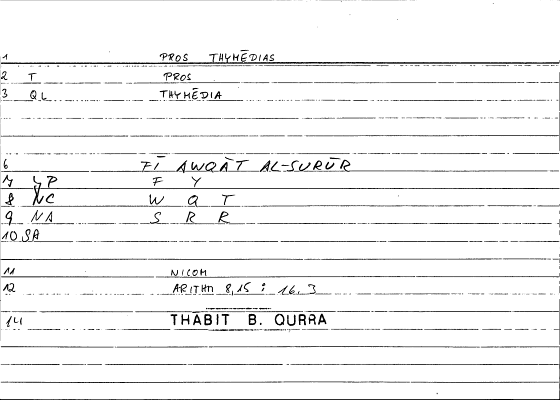 1 PROS THYMĒDIAS
2 T PROS
3 QL THYMĒDIA
6 FĪ AWQĀT AL-SURŪR
7 P F Y
8 NC W Q T
9 NA S R R
10 SA
11 NICOM
12 ARITHM 8,15 : 16.3
14 THĀBIT B. QURRA